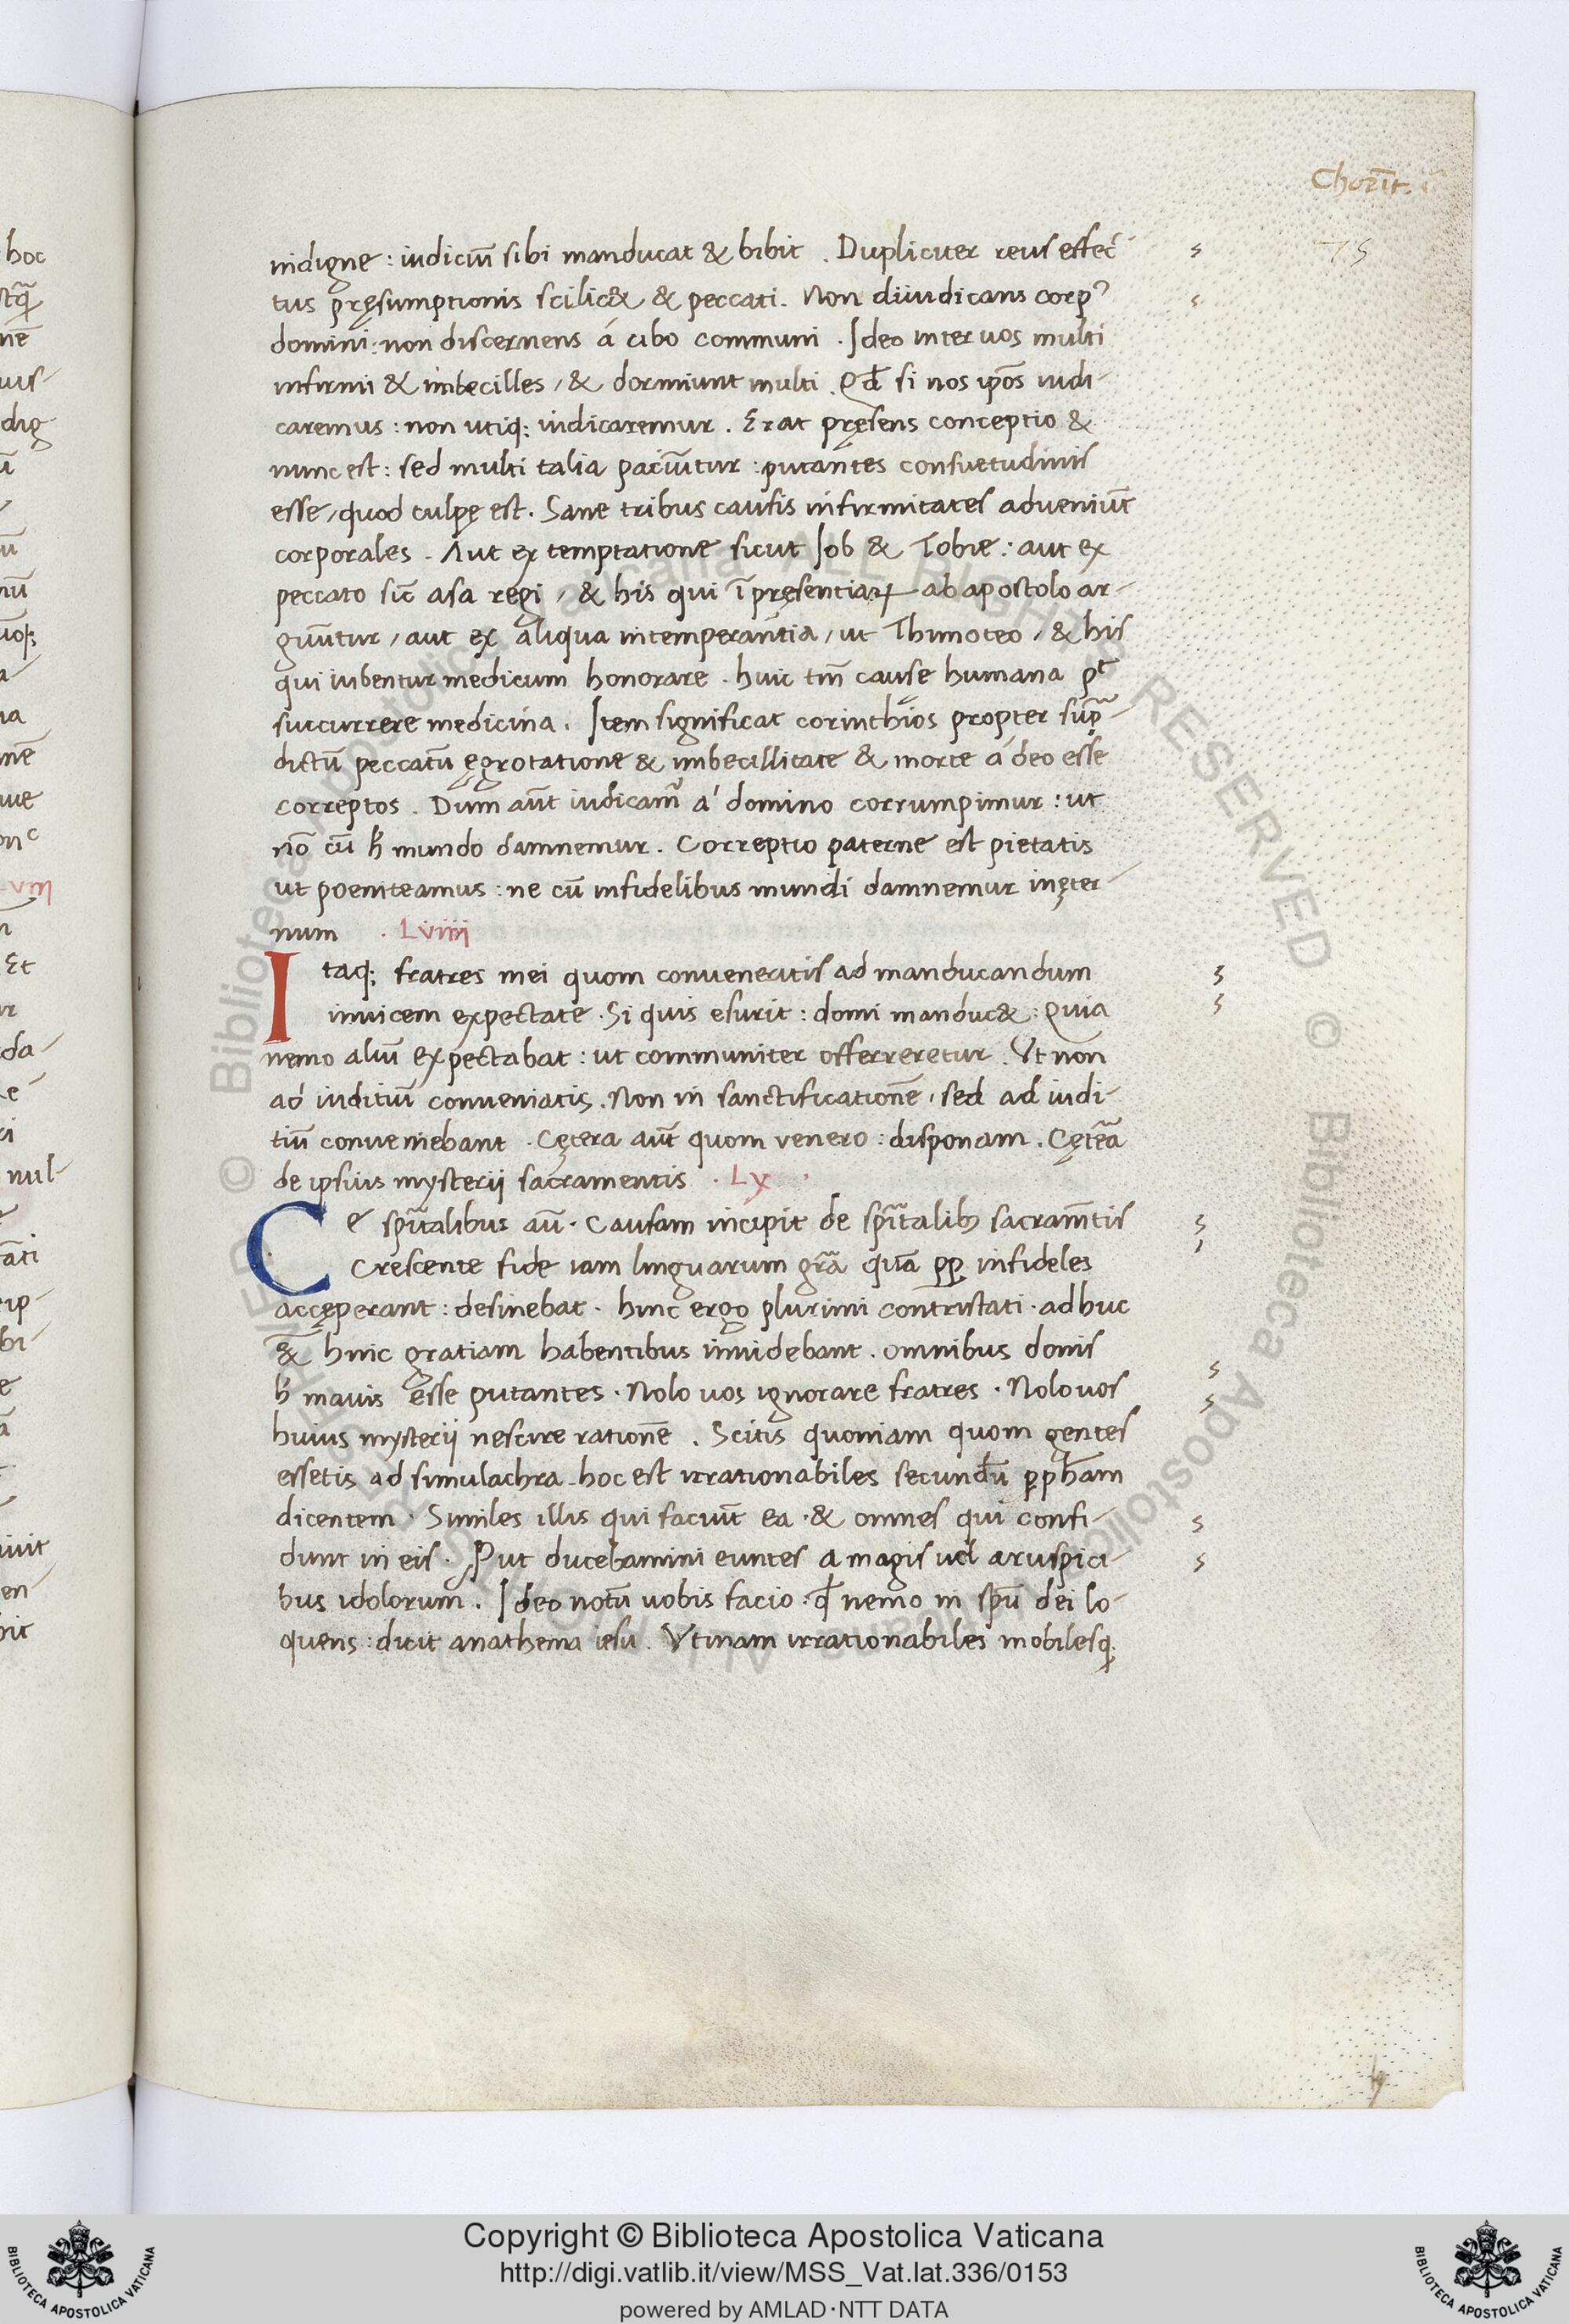 Chorĩt. i
75
indigne : iudiciũ sibi manducat & bibit . Dupliciter reus effec-
tus pręsumptionis scilic& & peccati . Non diiudicans corpꝰ
domini : non discernens á cibo communi . Ideo inter uos multi
infirmi & imbecilles / & dormiunt multi . Qđ si nos ip̃os iudi-
caremus : non utiq; iudicaremur . Erat pręsens conceptio &
nunc est : sed multi talia paciũtur : putantes consuetudinis
esse / quod culpę est . Sane tribus causis infirmitates adueniũt
corporales . Aut ex temptatione sicut Iob & Tobie : aut ex
peccato sic̃ asa regi / & his qui ĩ pręsentiaꝝ ab apostolo ar-
guũtur / aut ex aliqua intemperantia / ut Thimoteo / & his
qui iubentur medicum honorare . huic tm̃ cause humana pt̃
succurrere medicina . Item significat corinthios propter sup̃-
dictũ peccatũ ęgrotatione & imbecillitate & morte á deo esse
correptos . Dum aũt iudicam̃ á domino corrumpimur : ut
nõ cũ h̃ mundo damnemur . Correptio paterne est pietatis
ut poeniteamus : ne cũ infidelibus mundi damnemur inęter-
num . Lviiii
Itaq; fratres mei quom conueneritis ad manducandum
inuicem expectate . Si quis esurit : domi manduc& : Quia
nemo aliũ expectabat : ut communiter offerreretur . Vt non
ad iuditiũ conueniatis . Non in sanctificationẽ , sed ad iudi-
tiũ conueniebant . Cętera aũt quom venero : disponam . Cętẽa
de ipsius mysterii sacramentis . Lx
Ce spũalibus aũ . Causam incipit de spĩtalib; sacram̃tis
Crescente fide iam linguarum grã quã ꝑꝑ infideles
accęperant : desinebat . hinc ergo plurimi contristati . adhuc
&̃ hinc gratiam habentibus inuidebant . omnibus donis
h̃ mauis esse putantes . Nolo uos ignorare fratres . Nolo uos
huius mysterii nescire rationẽ . Scitis quoniam quom gentes
essetis ad simulachra . hoc est irrationabiles secundũ ꝓph̃am
dicentem . Similes illis qui faciũt ea . & omnes qui confi-
dunt in eis . Put ducebamini euntes a magis uel aruspici-
bus idolorum . Ideo notũ uobis facio . qđ nemo in spũ dei lo-
quens : dicit anathema iesu . Vtinam irrationabiles mobilesq;
Copyright © Biblioteca Apostolica Vaticana
http://digi.vatlib.it/view/MSS_Vat.lat.336/0153
powered by AMLAD·NTT DATA